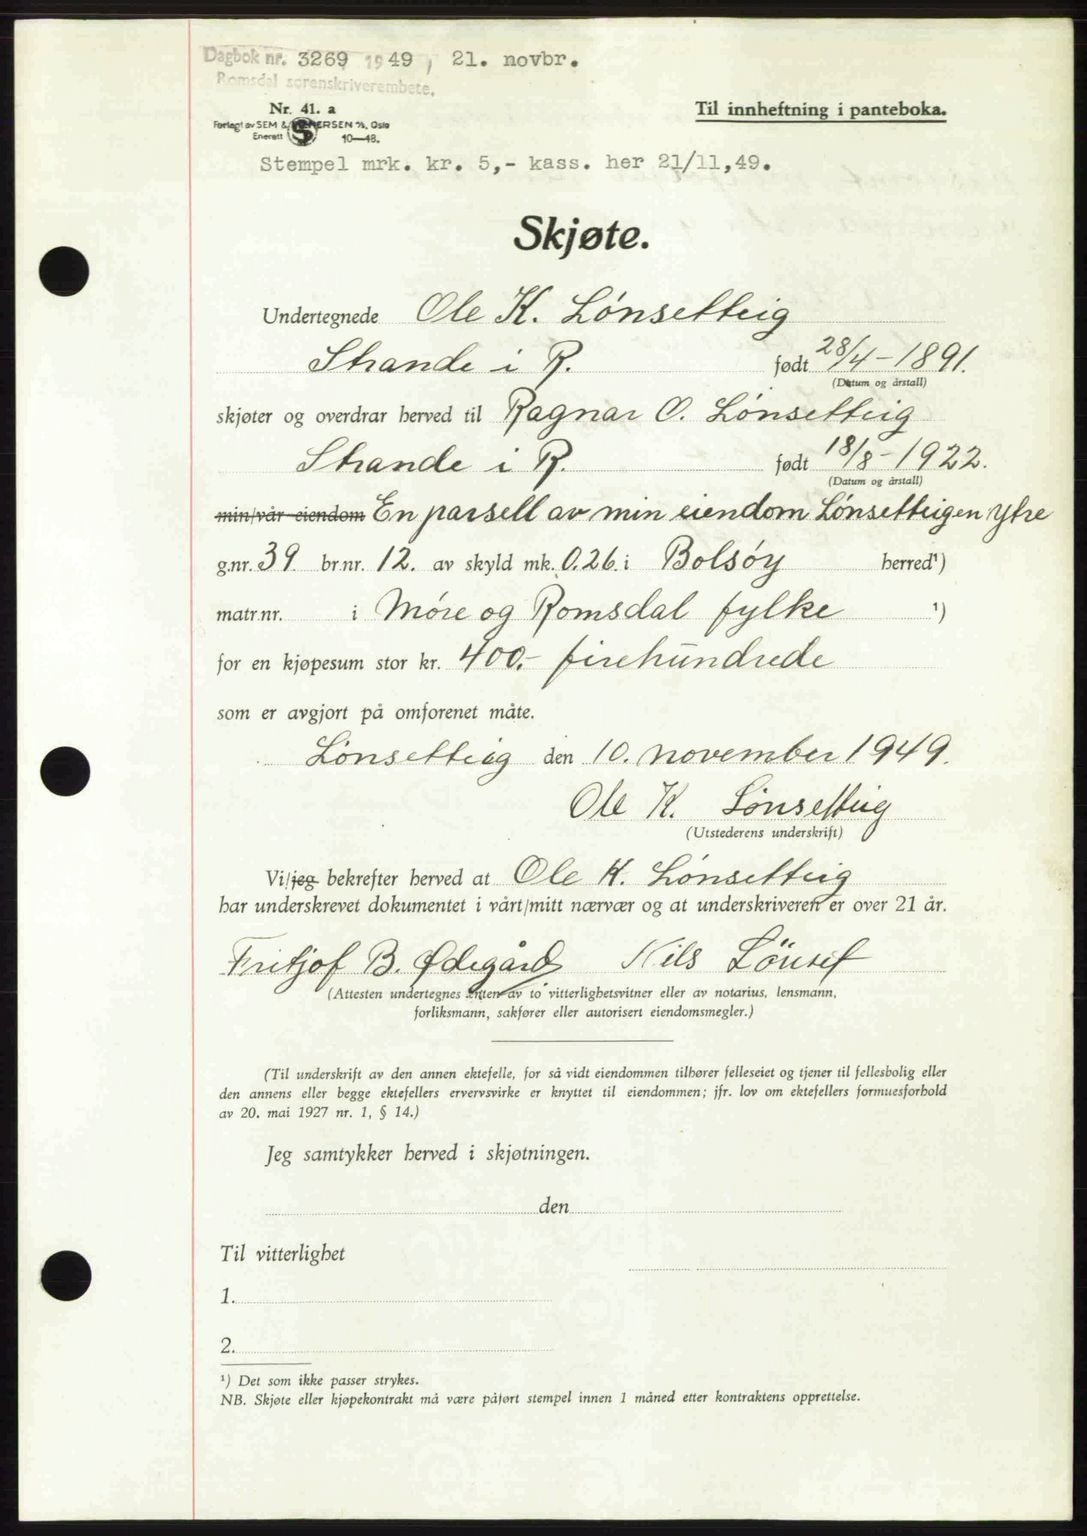 Dagbok nr. 3269 1949, 21. novbr.
Romsdal sorenskriverembete.
Nr. 41. a
Til innheftning i panteboka.
Forlagt av SEM & STENERSEN A/S, Oslo
Enerett 10—48.
Stempel mrk. kr. 5,- kass. her 21/11,49.
Skjøte.
Undertegnede Ole K. Lønsetteig
Strande i R. født 28/4-1891.
(Datum og årstall)
skjøter og overdrar herved til Ragnar O. Lønsetteig
Strande i R. født 18/8-1922.
(Datum og årstall)
min/vår eiendom En parsell av min eiendom Lønsetteigen ytre
g.nr. 39 br.nr. 12. av skyld mk. 0.26. i Bolsøy herred¹)
matr.nr. i Møre og Romsdal fylke ¹)
for en kjøpesum stor kr. 400.- firehundrede
som er avgjort på omforenet måte.
Lønsetteig den 10. november 1949.
Ole K. Lønsetteig
(Utstederens underskrift)
Vi/jeg bekrefter herved at Ole K. Lønsetteig
har underskrevet dokumentet i vårt/mitt nærvær og at underskriveren er over 21 år.
Fritjof B. Ødegård Nils Lönset
(Attesten undertegnes enten av to vitterlighetsvitner eller av notarius, lensmann,
forliksmann, sakfører eller autorisert eiendomsmegler.)
(Til underskrift av den annen ektefelle, for så vidt eiendommen tilhører felleseiet og tjener til fellesbolig eller
den annens eller begge ektefellers ervervsvirke er knyttet til eiendommen; jfr. lov om ektefellers formuesforhold
av 20. mai 1927 nr. 1, § 14.)
Jeg samtykker herved i skjøtningen.
den
Til vitterlighet
1.
2.
¹) Det som ikke passer strykes.
NB. Skjøte eller kjøpekontrakt må være påført stempel innen 1 måned etter kontraktens opprettelse.